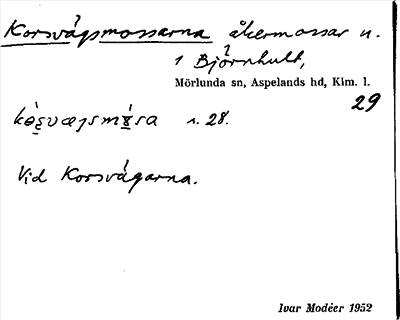 Korsvägsmossarna åkermossar n.
1 Björnhult,
Mörlunda sn, Aspelands hd, Klm. l.
29
n. 28.
Vid Korsvägarna.
Ivar Modéer 1952